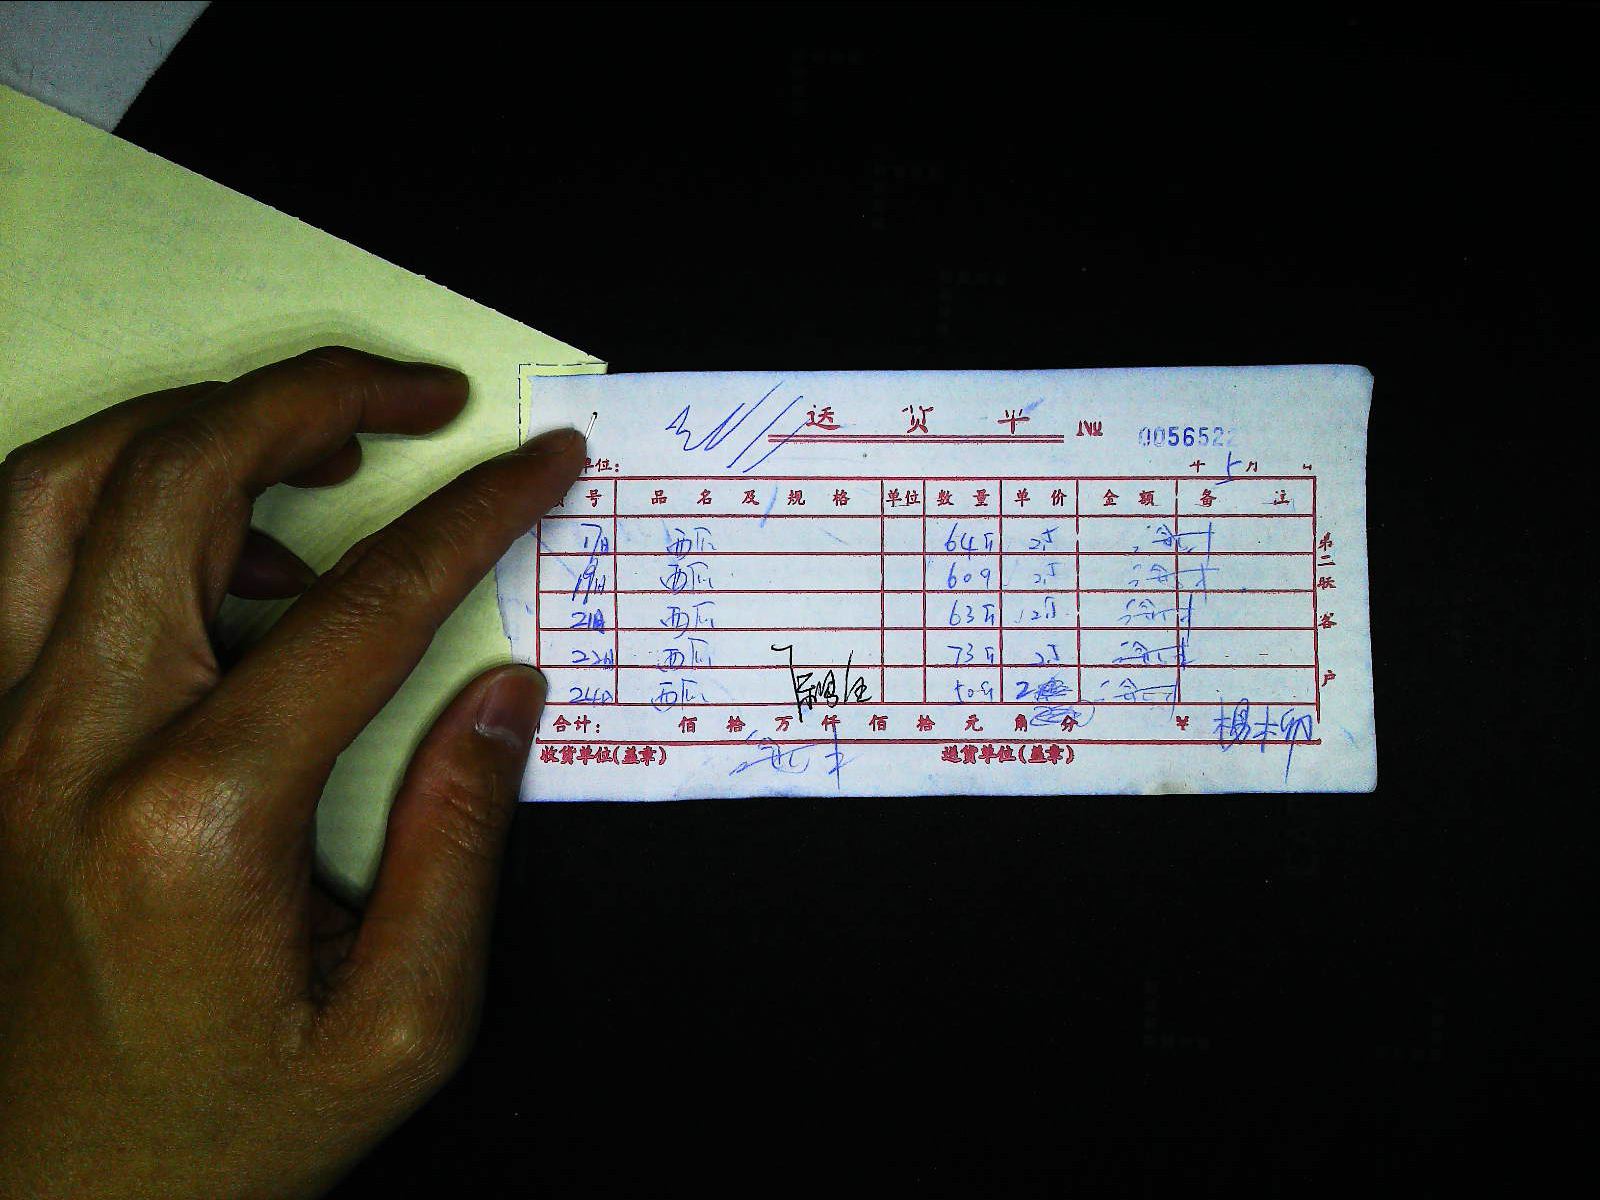 送 货 单 No 005652
单位： 年 5 月 日
号 品 名 及 规 格 单位 数 量 单 价 金 额 备 注
17日 西瓜 64斤 2.5
19日 西瓜 60斤 2.5
21日 西瓜 63斤 2.5
22日 西瓜 73斤 2.5
24日 西瓜 50斤 2
合计： 佰 拾 万 仟 佰 拾 元 角 分 ¥
收货单位(盖章) 送货单位(盖章)
第二联 客户